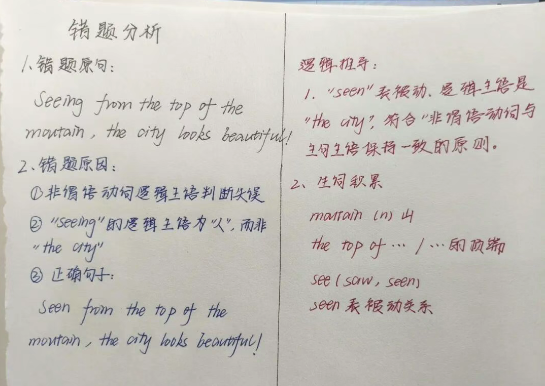 错题分析
1、错题原句：
Seeing from the top of the
moutain, the city looks beautiful!
2、错题原因：
①非谓语动词逻辑主语判断失误
②"seeing"的逻辑主语为"人"，而非
"the city"
③正确句子：
Seen from the top of the
moutain, the city looks beautiful!
逻辑推导：
1. "seen"表被动、逻辑主语是
"the city"，符合"非谓语动词与
主句主语保持一致的原则。
2、生词积累
moutain (n) 山
the top of … / …的顶端
see (saw, seen)
seen 表被动关系